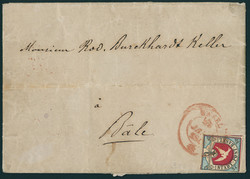 Monsieur Rod. Burckhardt Keller
à
Bâle